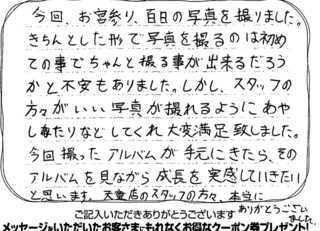 今回、お宮参り、百日の写真を撮りました。
きちんとした形で写真を撮るのは初め
ての事でちゃんと撮る事が出来るだろう
かと不安もありました。しかし、スタッフの
方々がいい写真が撮れるようにあや
したりなどしてくれ大変満足致しました。
今回撮ったアルバムが手元にきたら、その
アルバムを見ながら成長を実感していきたい
と思います。天童店のスタッフの方々、本当に
ありがとうござい
ました。
ご記入いただきありがとうございます
メッセージをいただいたお客さまにもれなくお得なクーポン券プレゼント!